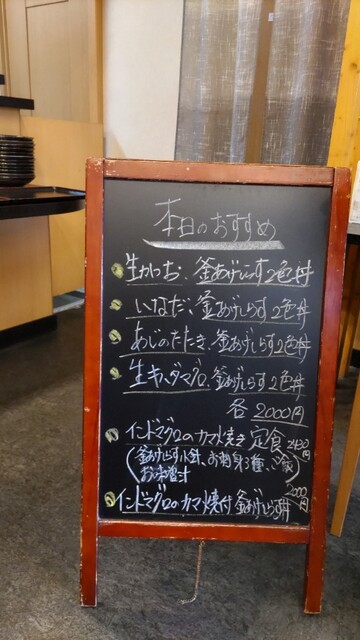 本日のおすすめ
生かつお、釜あげしらす2色丼
いなだ、釜あげしらす2色丼
あじのたたき、釜あげしらす2色丼
生キハダマグロ、釜あげしらす2色丼
各2000円
インドマグロのカマ焼き定食 2450円
(釜あげしらす小鉢、お刺身3種、ご飯
お味噌汁)
インドマグロのカマ焼付 釜あげしらす丼 2000円